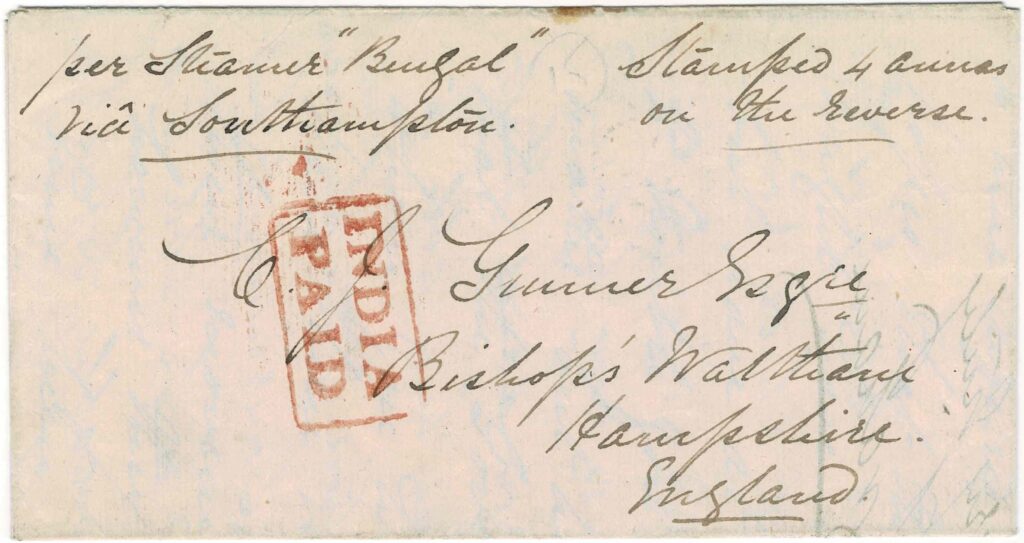 per Steamer "Bengal"
viâ Southampton.
Stamped 4 annas
on the reverse.
INDIA
PAID
C. J. Gunner Esqre
Bishop's Waltham
Hampshire.
England.